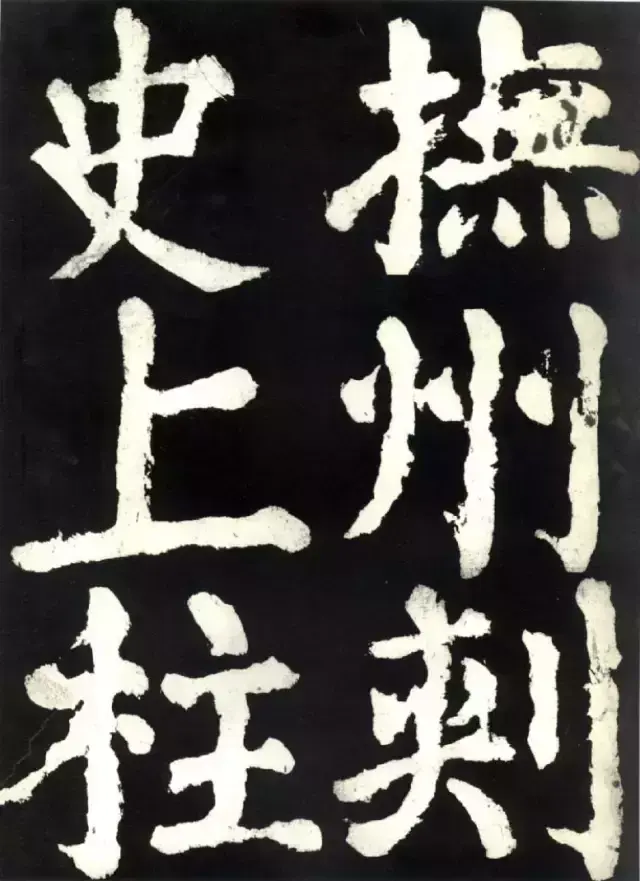 撫州刺
史上柱